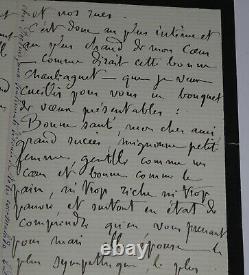 et nos rues.
C'est donc au plus intime et
au plus grand de mon cœur
— comme dirait cette bonne
Chaubaguet que je veux
cueillir pour vous un bouquet
de vœux présentables :
Bonne santé, mon cher ami
grand succès, mignonne petite
femme, gentille comme un
cœur et bonne comme le
pain, ni trop riche ni trop
pauvre et surtout en état de
comprendre qu'en vous prenant
pour mari elle épouse le
plus sympathique le plus